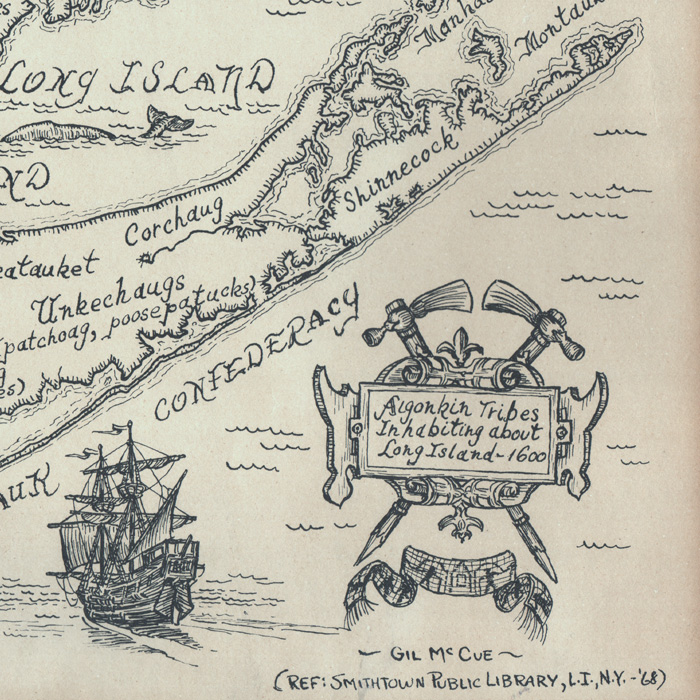 Montauk
LONG ISLAND
ND
Shinnecock
Corchaug
Unkechaugs
(patchoag, poosepatucks)
CONFEDERACY
AUK
Algonkin Tribes
Inhabiting about
Long Island-1600
~ GIL McCUE ~
(REF: SMITHTOWN PUBLIC LIBRARY, L.I., N.Y. -'68)